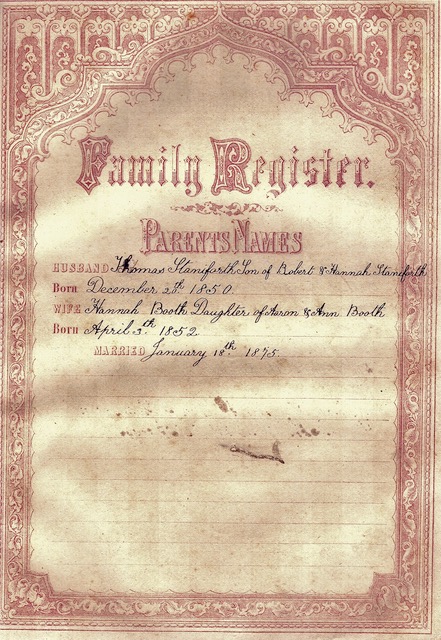 Family Register.
PARENTS NAMES
HUSBAND Thomas Staniforth Son of Robert & Hannah Staniforth
Born December 20th 1850.
WIFE Hannah Booth Daughter of Aaron & Ann Booth
Born April 3th 1852
MARRIED January 18th 1875.